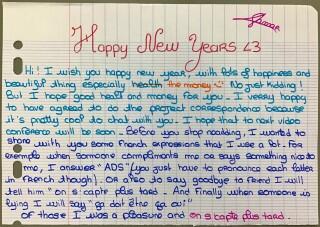 Happy New Years <3
Hi! I wish you happy new year, with lots of happiness and
beautiful thing especially health the money :) No just kidding!
But I hope good healt and money for you. I verry happy
to have agreed to do the project correspondence because
it's pretty cool to chat with you. I hope that to next video
conference will be soon. Before you stop reading, I wanted to
share with you some french expressions that I use a lot. For
exemple when someone compliments me or says something nice to
me, I answer "ADS" (you just have to pronounce each letter
in French though). Or also to say goodbye to friend I will
tell him "on s'capte plus tard. And finally when someone is
lying I will say "ça doit être ça oui"
Of those I was a pleasure and on s'capte plus tard.